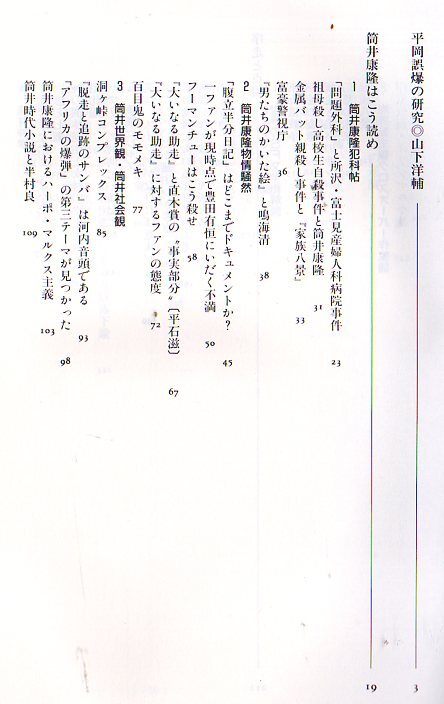 平岡誤爆の研究◎山下洋輔 3
筒井康隆はこう読め 19
1 筒井康隆犯科帖
「問題外科」と所沢・富士見産婦人科病院事件 23
祖母殺し高校生自殺事件と筒井康隆 31
金属バット親殺し事件と『家族八景』 33
富豪警視庁 36
『男たちのかいた絵』と鳴海清 38
2 筒井康隆物情騒然
「腹立半分日記」はどこまでドキュメントか? 45
一ファンが現時点で豊田有恒にいだく不満 50
フーマンチューはこう殺せ 58
『大いなる助走』と直木賞の〝事実部分〟〔平石滋〕 67
『大いなる助走』に対するファンの態度 72
百目鬼のモモメキ 77
3 筒井世界観・筒井社会観
洞ヶ峠コンプレックス 85
『脱走と追跡のサンバ』は河内音頭である 93
「アフリカの爆弾」の第三テーマが見つかった 98
筒井康隆におけるハーポ・マルクス主義 103
筒井時代小説と半村良 109